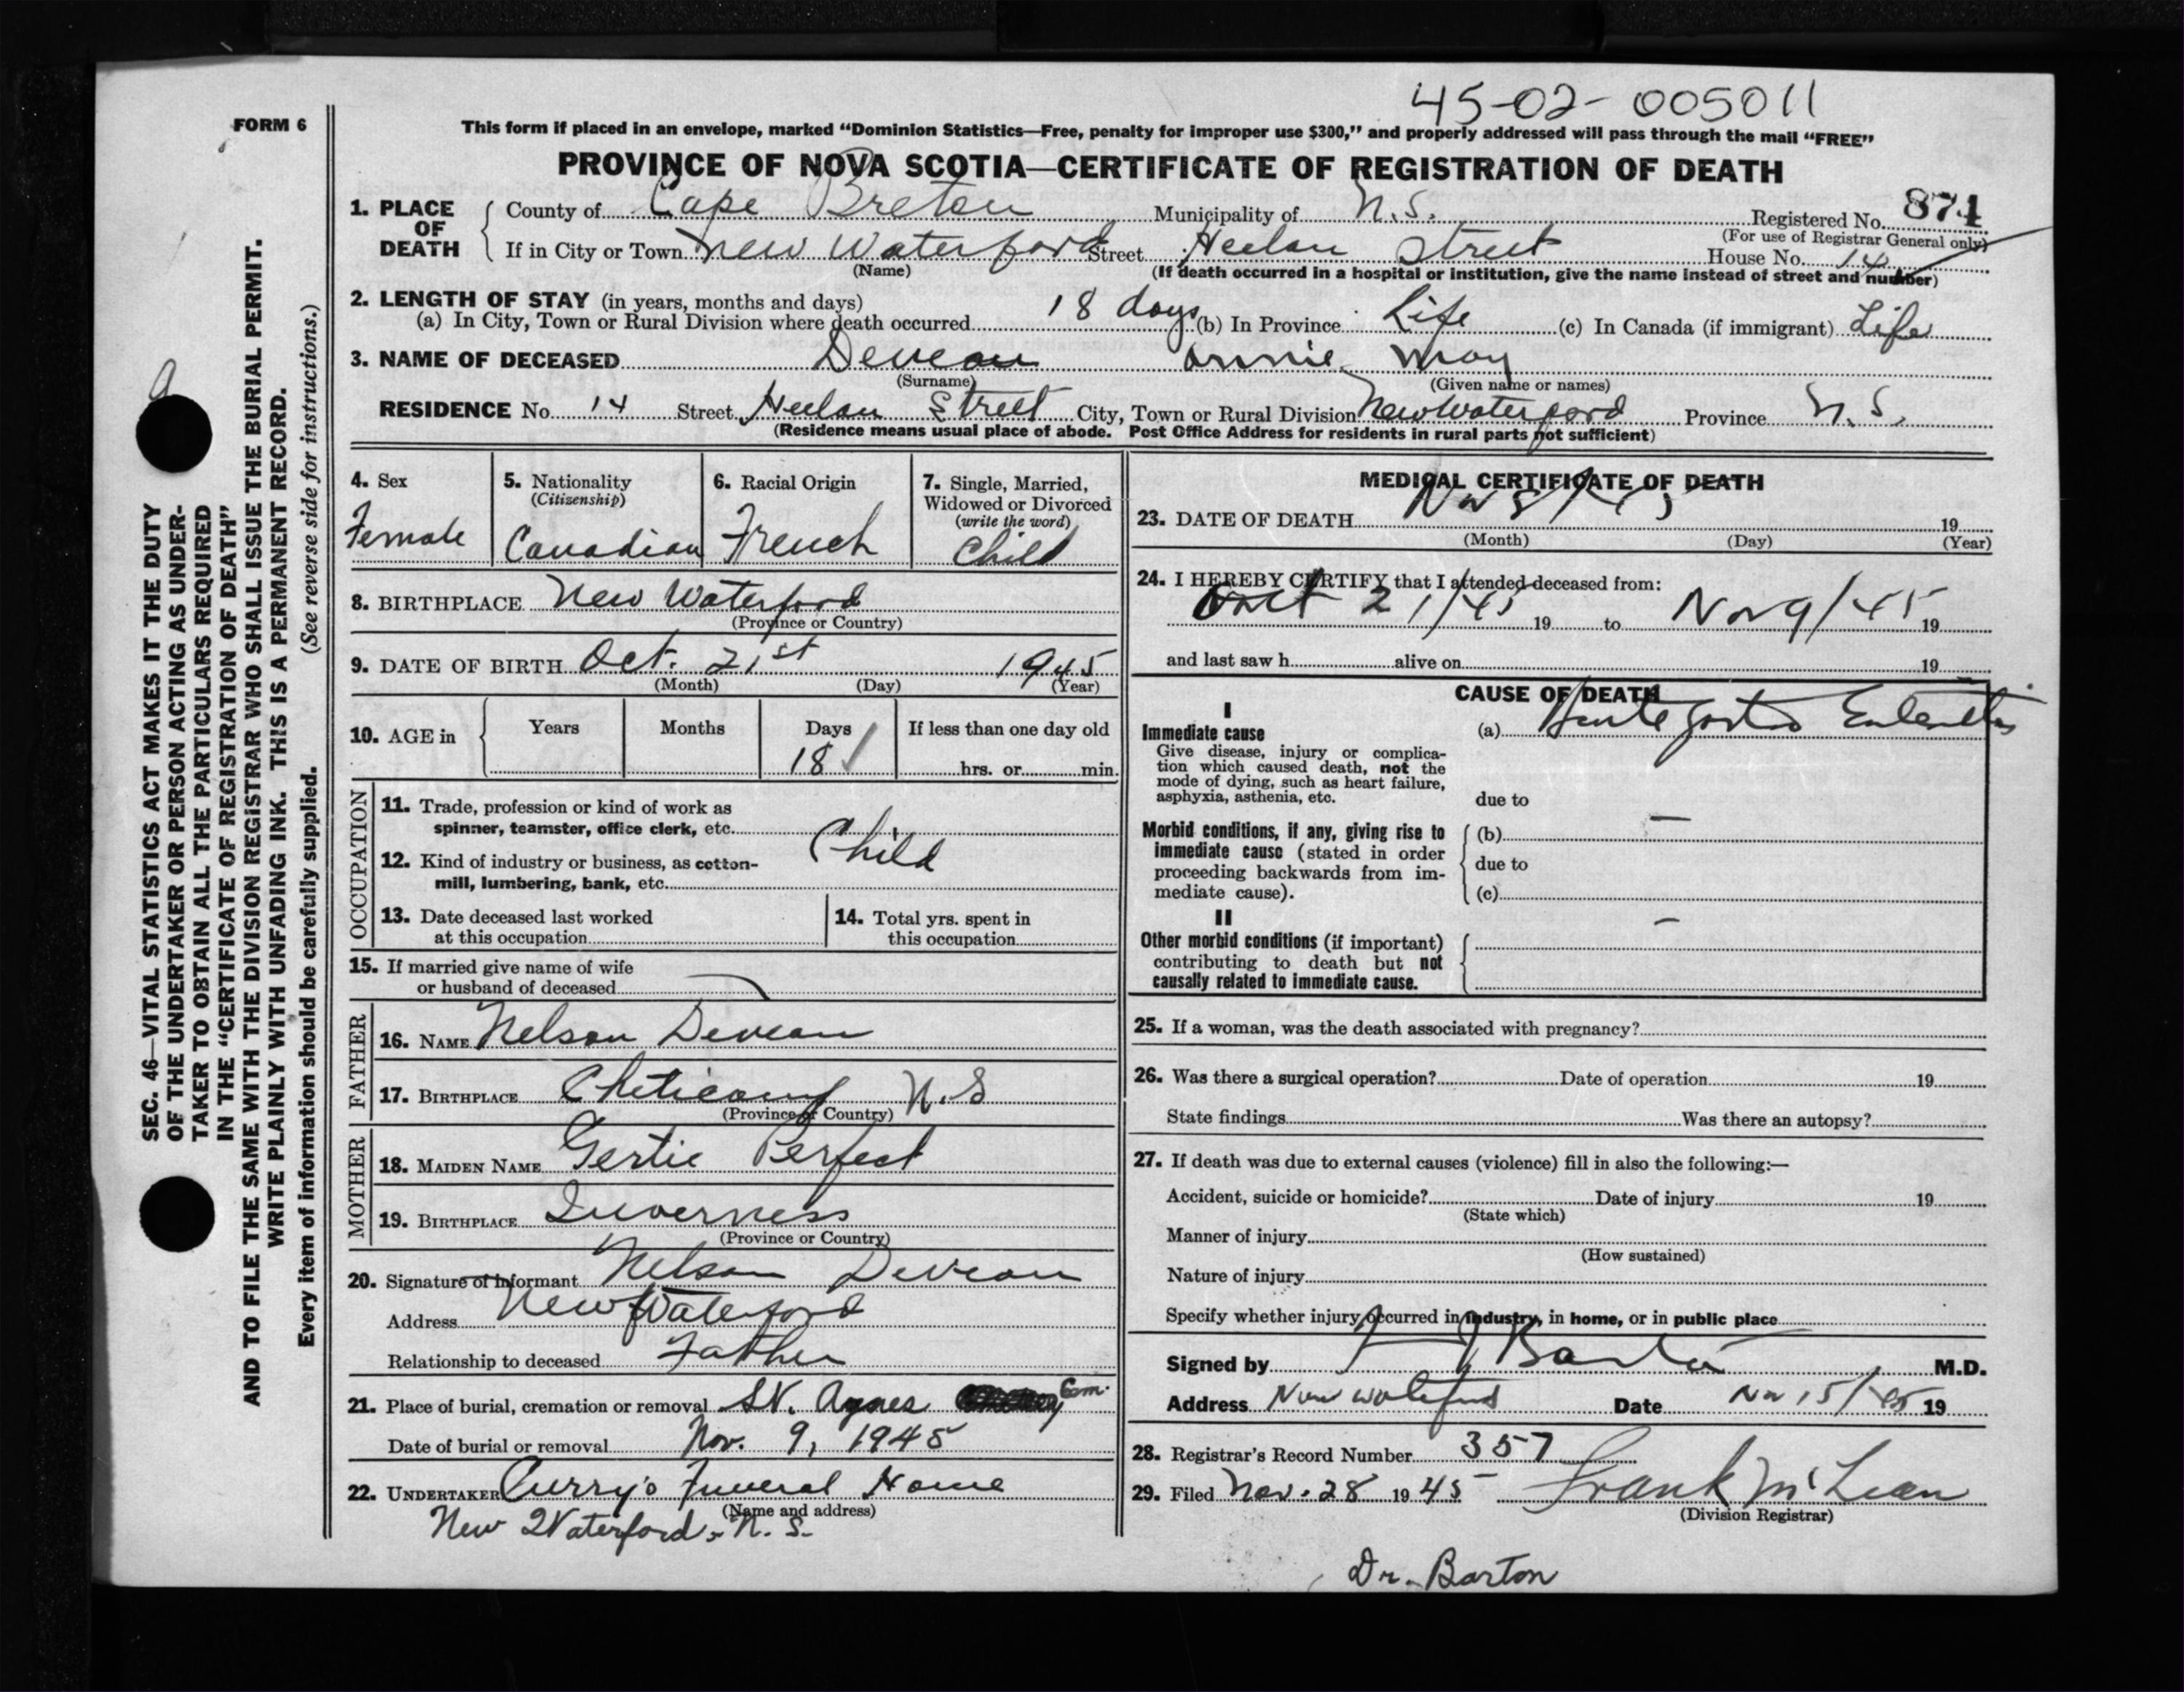 45-02-005011
FORM 6
This form if placed in an envelope, marked "Dominion Statistics—Free, penalty for improper use $300," and properly addressed will pass through the mail "FREE"
PROVINCE OF NOVA SCOTIA—CERTIFICATE OF REGISTRATION OF DEATH
1. PLACE OF DEATH
County of Cape Breton Municipality of N.S. Registered No. 874
(For use of Registrar General only)
If in City or Town New Waterford Street Heelan Street House No. 14
(Name) (If death occurred in a hospital or institution, give the name instead of street and number)
2. LENGTH OF STAY (in years, months and days)
(a) In City, Town or Rural Division where death occurred 18 days (b) In Province Life (c) In Canada (if immigrant) Life
3. NAME OF DECEASED Deveau Annie May
(Surname) (Given name or names)
RESIDENCE No. 14 Street Heelan Street City, Town or Rural Division New Waterford Province N.S.
(Residence means usual place of abode. Post Office Address for residents in rural parts not sufficient)
4. Sex
Female
5. Nationality
(Citizenship)
Canadian
6. Racial Origin
French
7. Single, Married, Widowed or Divorced
(write the word)
Child
8. BIRTHPLACE New Waterford
(Province or Country)
9. DATE OF BIRTH Oct. 21st 1945
(Month) (Day) (Year)
10. AGE in
Years Months Days If less than one day old
18 hrs. or min.
OCCUPATION
11. Trade, profession or kind of work as
spinner, teamster, office clerk, etc.
Child
12. Kind of industry or business, as cotton-
mill, lumbering, bank, etc.
13. Date deceased last worked
at this occupation
14. Total yrs. spent in
this occupation
15. If married give name of wife
or husband of deceased
FATHER
16. NAME Nelson Deveau
17. BIRTHPLACE Cheticamp N.S
(Province or Country)
MOTHER
18. MAIDEN NAME Gertie Perfect
19. BIRTHPLACE Inverness
(Province or Country)
20. Signature of Informant Nelson Deveau
Address New Waterford
Relationship to deceased Father
21. Place of burial, cremation or removal St. Agnes Cem.
Date of burial or removal Nov. 9, 1945
22. UNDERTAKER Curry's Funeral Home
(Name and address)
New Waterford, N. S.
MEDICAL CERTIFICATE OF DEATH
23. DATE OF DEATH Nov 8/45 19
(Month) (Day) (Year)
24. I HEREBY CERTIFY that I attended deceased from:
Oct 21/45 19 to Nov 9/45 19
and last saw h alive on 19
CAUSE OF DEATH
I
Immediate cause
Give disease, injury or complica-
tion which caused death, not the
mode of dying, such as heart failure,
asphyxia, asthenia, etc.
(a) Acute gastro Enteritis
due to
Morbid conditions, if any, giving rise to
immediate cause (stated in order
proceeding backwards from im-
mediate cause).
(b) —
due to
(c)
II
Other morbid conditions (if important)
contributing to death but not
causally related to immediate cause.
—
25. If a woman, was the death associated with pregnancy?
26. Was there a surgical operation? Date of operation 19
State findings Was there an autopsy?
27. If death was due to external causes (violence) fill in also the following:—
Accident, suicide or homicide? Date of injury 19
(State which)
Manner of injury
(How sustained)
Nature of injury
Specify whether injury occurred in industry, in home, or in public place
Signed by J Barton M.D.
Address New Waterford Date Nov 15/45 19
28. Registrar's Record Number 357
29. Filed Nov. 28 1945 Frank McLean
(Division Registrar)
Dr. Barton
SEC. 46—VITAL STATISTICS ACT MAKES IT THE DUTY
OF THE UNDERTAKER OR PERSON ACTING AS UNDER-
TAKER TO OBTAIN ALL THE PARTICULARS REQUIRED
IN THE "CERTIFICATE OF REGISTRATION OF DEATH"
AND TO FILE THE SAME WITH THE DIVISION REGISTRAR WHO SHALL ISSUE THE BURIAL PERMIT.
WRITE PLAINLY WITH UNFADING INK. THIS IS A PERMANENT RECORD.
Every item of information should be carefully supplied. (See reverse side for instructions.)